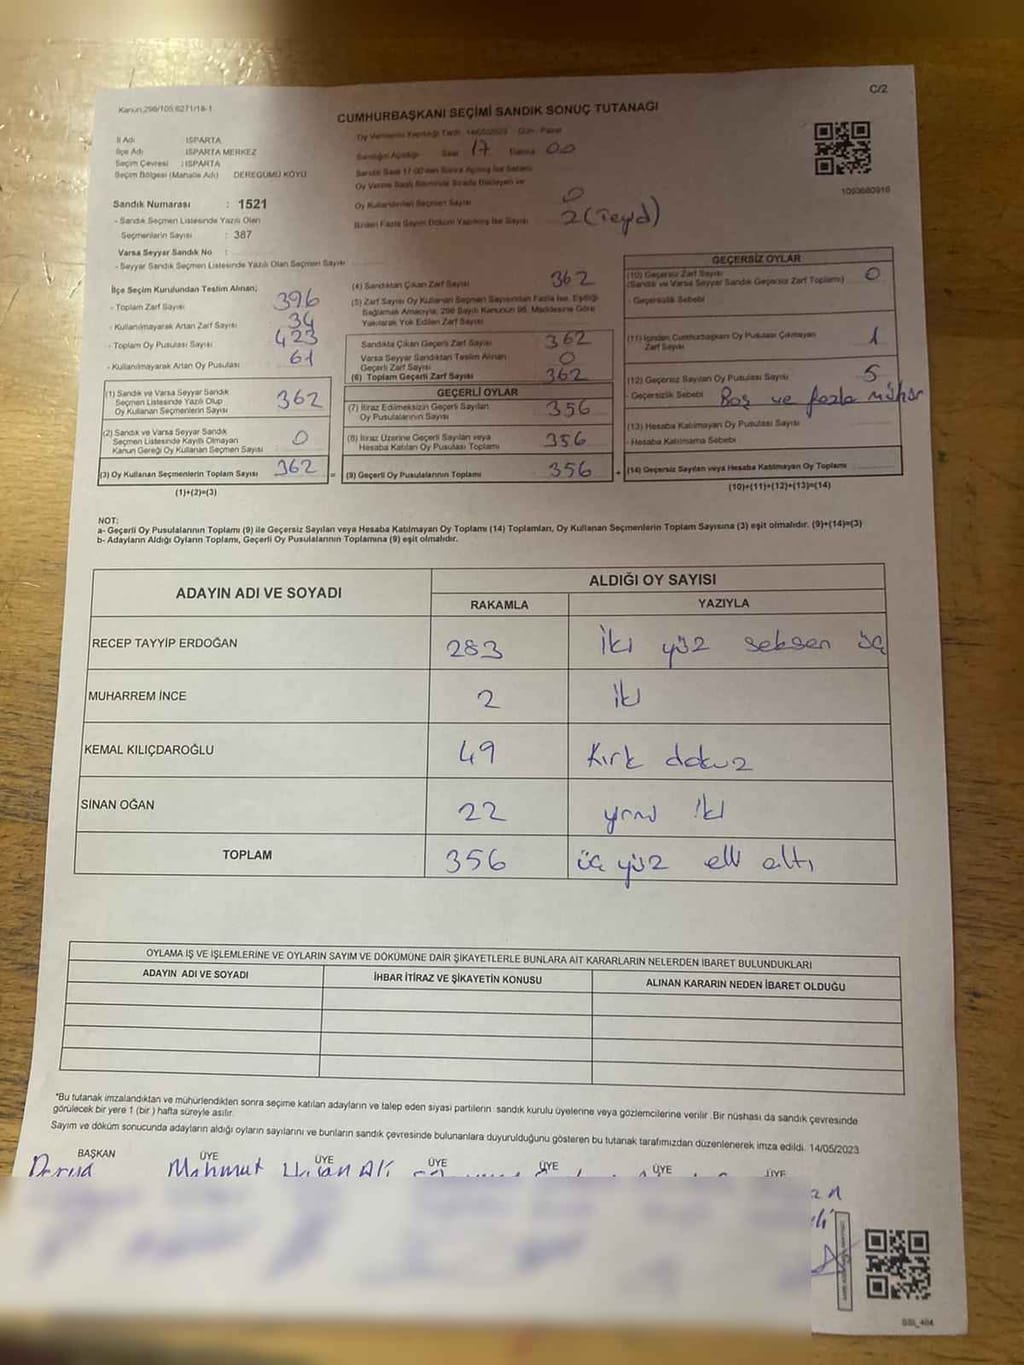 Kanun:298/105;6271/18-1
C/2
CUMHURBAŞKANI SEÇİMİ SANDIK SONUÇ TUTANAĞI
İl Adı ISPARTA
İlçe Adı ISPARTA MERKEZ
Seçim Çevresi : ISPARTA
Seçim Bölgesi (Mahalle Adı) DEREGÜMÜ KÖYÜ
Oy Vermenin Yapıldığı Tarih 14/05/2023 Gün: Pazar
Sandığın Açıldığı Saat 17 00
Oy Kullandırılan Seçmen Sayısı 0
2 (Teyd)
1093680916
Sandık Numarası : 1521
- Sandık Seçmen Listesinde Yazılı Olan
Seçmenlerin Sayısı : 387
Varsa Seyyar Sandık No :
- Seyyar Sandık Seçmen Listesinde Yazılı Olan Seçmen Sayısı
İlçe Seçim Kurulundan Teslim Alınan;
- Toplam Zarf Sayısı 396
- Kullanılmayarak Artan Zarf Sayısı 34
- Toplam Oy Pusulası Sayısı 423
- Kullanılmayarak Artan Oy Pusulası 61
(1) Sandık ve Varsa Seyyar Sandık
Seçmen Listesinde Yazılı Olup
Oy Kullanan Seçmenlerin Sayısı 362
(2) Sandık ve Varsa Seyyar Sandık
Seçmen Listesinde Kayıtlı Olmayan
Kanun Gereği Oy Kullanan Seçmen Sayısı 0
(3) Oy Kullanan Seçmenlerin Toplam Sayısı 362
(1)+(2)=(3)
(4) Sandıktan Çıkan Zarf Sayısı 362
(5) Zarf Sayısı Oy Kullanan Seçmen Sayısından Fazla İse, Eşitliği
Sağlamak Amacıyla; 298 Sayılı Kanunun 98. Maddesine Göre
Yakılarak Yok Edilen Zarf Sayısı
Sandıkta Çıkan Geçerli Zarf Sayısı 362
Varsa Seyyar Sandıktan Teslim Alınan
Geçerli Zarf Sayısı 0
(6) Toplam Geçerli Zarf Sayısı 362
GEÇERLİ OYLAR
(7) İtiraz Edilmeksizin Geçerli Sayılan
Oy Pusulalarının Sayısı 356
(8) İtiraz Üzerine Geçerli Sayılan veya
Hesaba Katılan Oy Pusulası Toplamı 356
= (9) Geçerli Oy Pusulalarının Toplamı 356
GEÇERSİZ OYLAR
(10) Geçersiz Zarf Sayısı
(Sandık ve Varsa Seyyar Sandık Geçersiz Zarf Toplamı) 0
- Geçersizlik Sebebi
(11) İçinden Cumhurbaşkanı Oy Pusulası Çıkmayan
Zarf Sayısı 1
(12) Geçersiz Sayılan Oy Pusulası Sayısı 5
- Geçersizlik Sebebi Boş ve fazla mühür
(13) Hesaba Katılmayan Oy Pusulası Sayısı
- Hesaba Katılmama Sebebi
+ (14) Geçersiz Sayılan veya Hesaba Katılmayan Oy Toplamı
(10)+(11)+(12)+(13)=(14)
NOT:
a- Geçerli Oy Pusulalarının Toplamı (9) ile Geçersiz Sayılan veya Hesaba Katılmayan Oy Toplamı (14) Toplamları, Oy Kullanan Seçmenlerin Toplam Sayısına (3) eşit olmalıdır. (9)+(14)=(3)
b- Adayların Aldığı Oyların Toplamı, Geçerli Oy Pusulalarının Toplamına (9) eşit olmalıdır.
ADAYIN ADI VE SOYADI
ALDIĞI OY SAYISI
RAKAMLA YAZIYLA
RECEP TAYYİP ERDOĞAN 283 iki yüz seksen üç
MUHARREM İNCE 2 iki
KEMAL KILIÇDAROĞLU 49 Kırk dokuz
SİNAN OĞAN 22 yirmi iki
TOPLAM 356 üç yüz elli altı
OYLAMA İŞ VE İŞLEMLERİNE VE OYLARIN SAYIM VE DÖKÜMÜNE DAİR ŞİKAYETLERLE BUNLARA AİT KARARLARIN NELERDEN İBARET BULUNDUKLARI
ADAYIN ADI VE SOYADI İHBAR İTİRAZ VE ŞİKAYETİN KONUSU ALINAN KARARIN NEDEN İBARET OLDUĞU
*Bu tutanak imzalandıktan ve mühürlendikten sonra seçime katılan adayların ve talep eden siyasi partilerin sandık kurulu üyelerine veya gözlemcilerine verilir. Bir nüshası da sandık çevresinde
görülecek bir yere 1 (bir) hafta süreyle asılır.
Sayım ve döküm sonucunda adayların aldığı oyların sayılarını ve bunların sandık çevresinde bulunanlara duyurulduğunu gösteren bu tutanak tarafımızdan düzenlenerek imza edildi. 14/05/2023
BAŞKAN ÜYE ÜYE ÜYE ÜYE ÜYE ÜYE
Derya Mahmut Hasan Ali